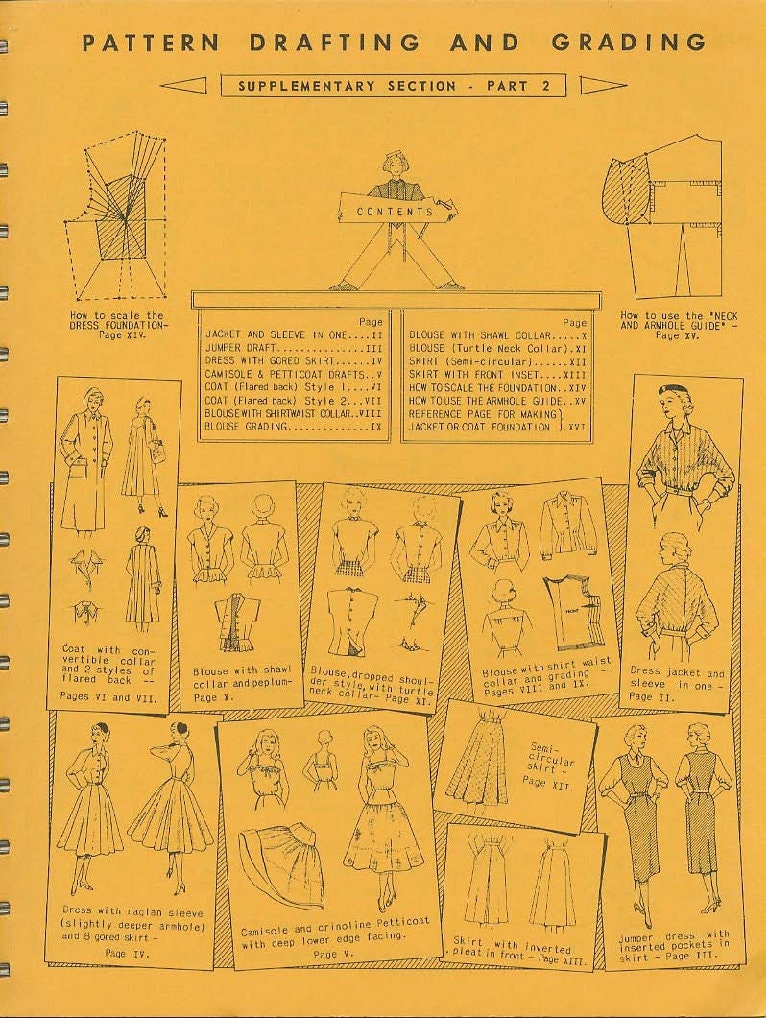 PATTERN DRAFTING AND GRADING
SUPPLEMENTARY SECTION - PART 2
CONTENTS
How to scale the
DRESS FOUNDATION-
Page XIV.
How to use the "NECK
AND ARMHOLE GUIDE" -
Page XV.
Page
JACKET AND SLEEVE IN ONE....II
JUMPER DRAFT...............III
DRESS WITH GORED SKIRT......IV
CAMISOLE & PETTICOAT DRAFTS..V
COAT (Flared back) Style 1....VI
COAT (Flared back) Style 2...VII
BLOUSE WITH SHIRTWAIST COLLAR..VIII
BLOUSE GRADING..............IX
Page
BLOUSE WITH SHAWL COLLAR.....X
BLOUSE (Turtle Neck Collar).XI
SKIRT (Semi-circular)......XII
SKIRT WITH FRONT INSET....XIII
HOW TO SCALE THE FOUNDATION..XIV
HOW TO USE THE ARMHOLE GUIDE..XV
REFERENCE PAGE FOR MAKING}
JACKET OR COAT FOUNDATION } XVI
Coat with con-
vertible collar
and 2 styles of
flared back --
Pages VI and VII.
Blouse with shawl
collar and peplum-
Page X.
Blouse, dropped shoul-
der style, with turtle
neck collar- Page XI.
FRONT
Blouse with shirt waist
collar and grading -
Pages VIII and IX.
Dress jacket and
sleeve in one -
Page II.
Dress with raglan sleeve
(slightly deeper armhole)
and 8 gored skirt -
Page IV.
Camisole and crinoline Petticoat
with deep lower edge facing.
Page V.
Semi-
circular
skirt -
Page XII
Skirt with inverted
pleat in front - Page XIII.
Jumper dress with
inserted pockets in
skirt - Page III.